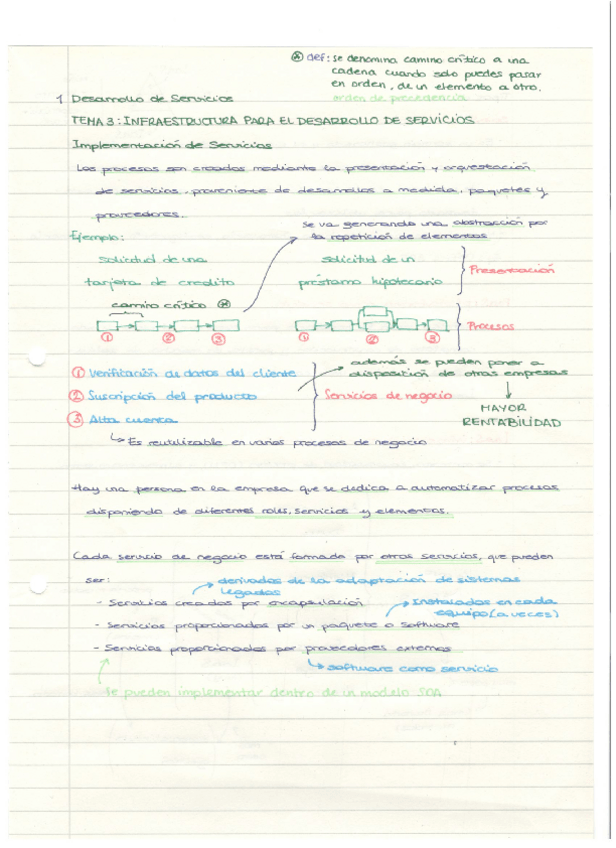 Ⓐ def: se denomina camino crítico a una
cadena cuando solo puedes pasar
en orden, de un elemento a otro.
orden de precedencia
1 Desarrollo de Servicios
TEMA 3: INFRAESTRUCTURA PARA EL DESARROLLO DE SERVICIOS
Implementación de Servicios
Los procesos son creados mediante la presentación y orquestación
de servicios, proveniente de desarrollos a medida, paquetes y
proveedores.
se va generando una abstracción por
la repetición de elementos
Ejemplo:
solicitud de una
tarjeta de credito
solicitud de un
préstamo hipotecario
Presentación
camino crítico Ⓐ
① ② ③
① ② ③
Procesos
① Verificación de datos del cliente
② Suscripción del producto
③ Alta cuenta
Servicios de negocio
además se pueden poner a
disposición de otras empresas
MAYOR
RENTABILIDAD
Es reutilizable en varios procesos de negocio
Hay una persona en la empresa que se dedica a automatizar procesos
disponiendo de diferentes roles, servicios y elementos.
Cada servicio de negocio está formada por otros servicios, que pueden
ser:
derivados de la adaptación de sistemas
legados
- Servicios creados por encapsulación
Instalados en cada
equipo (a veces)
- Servicios proporcionados por un paquete o Software
- Servicios proporcionados por proveedores externos
software como servicio
se pueden implementar dentro de un modelo SOA